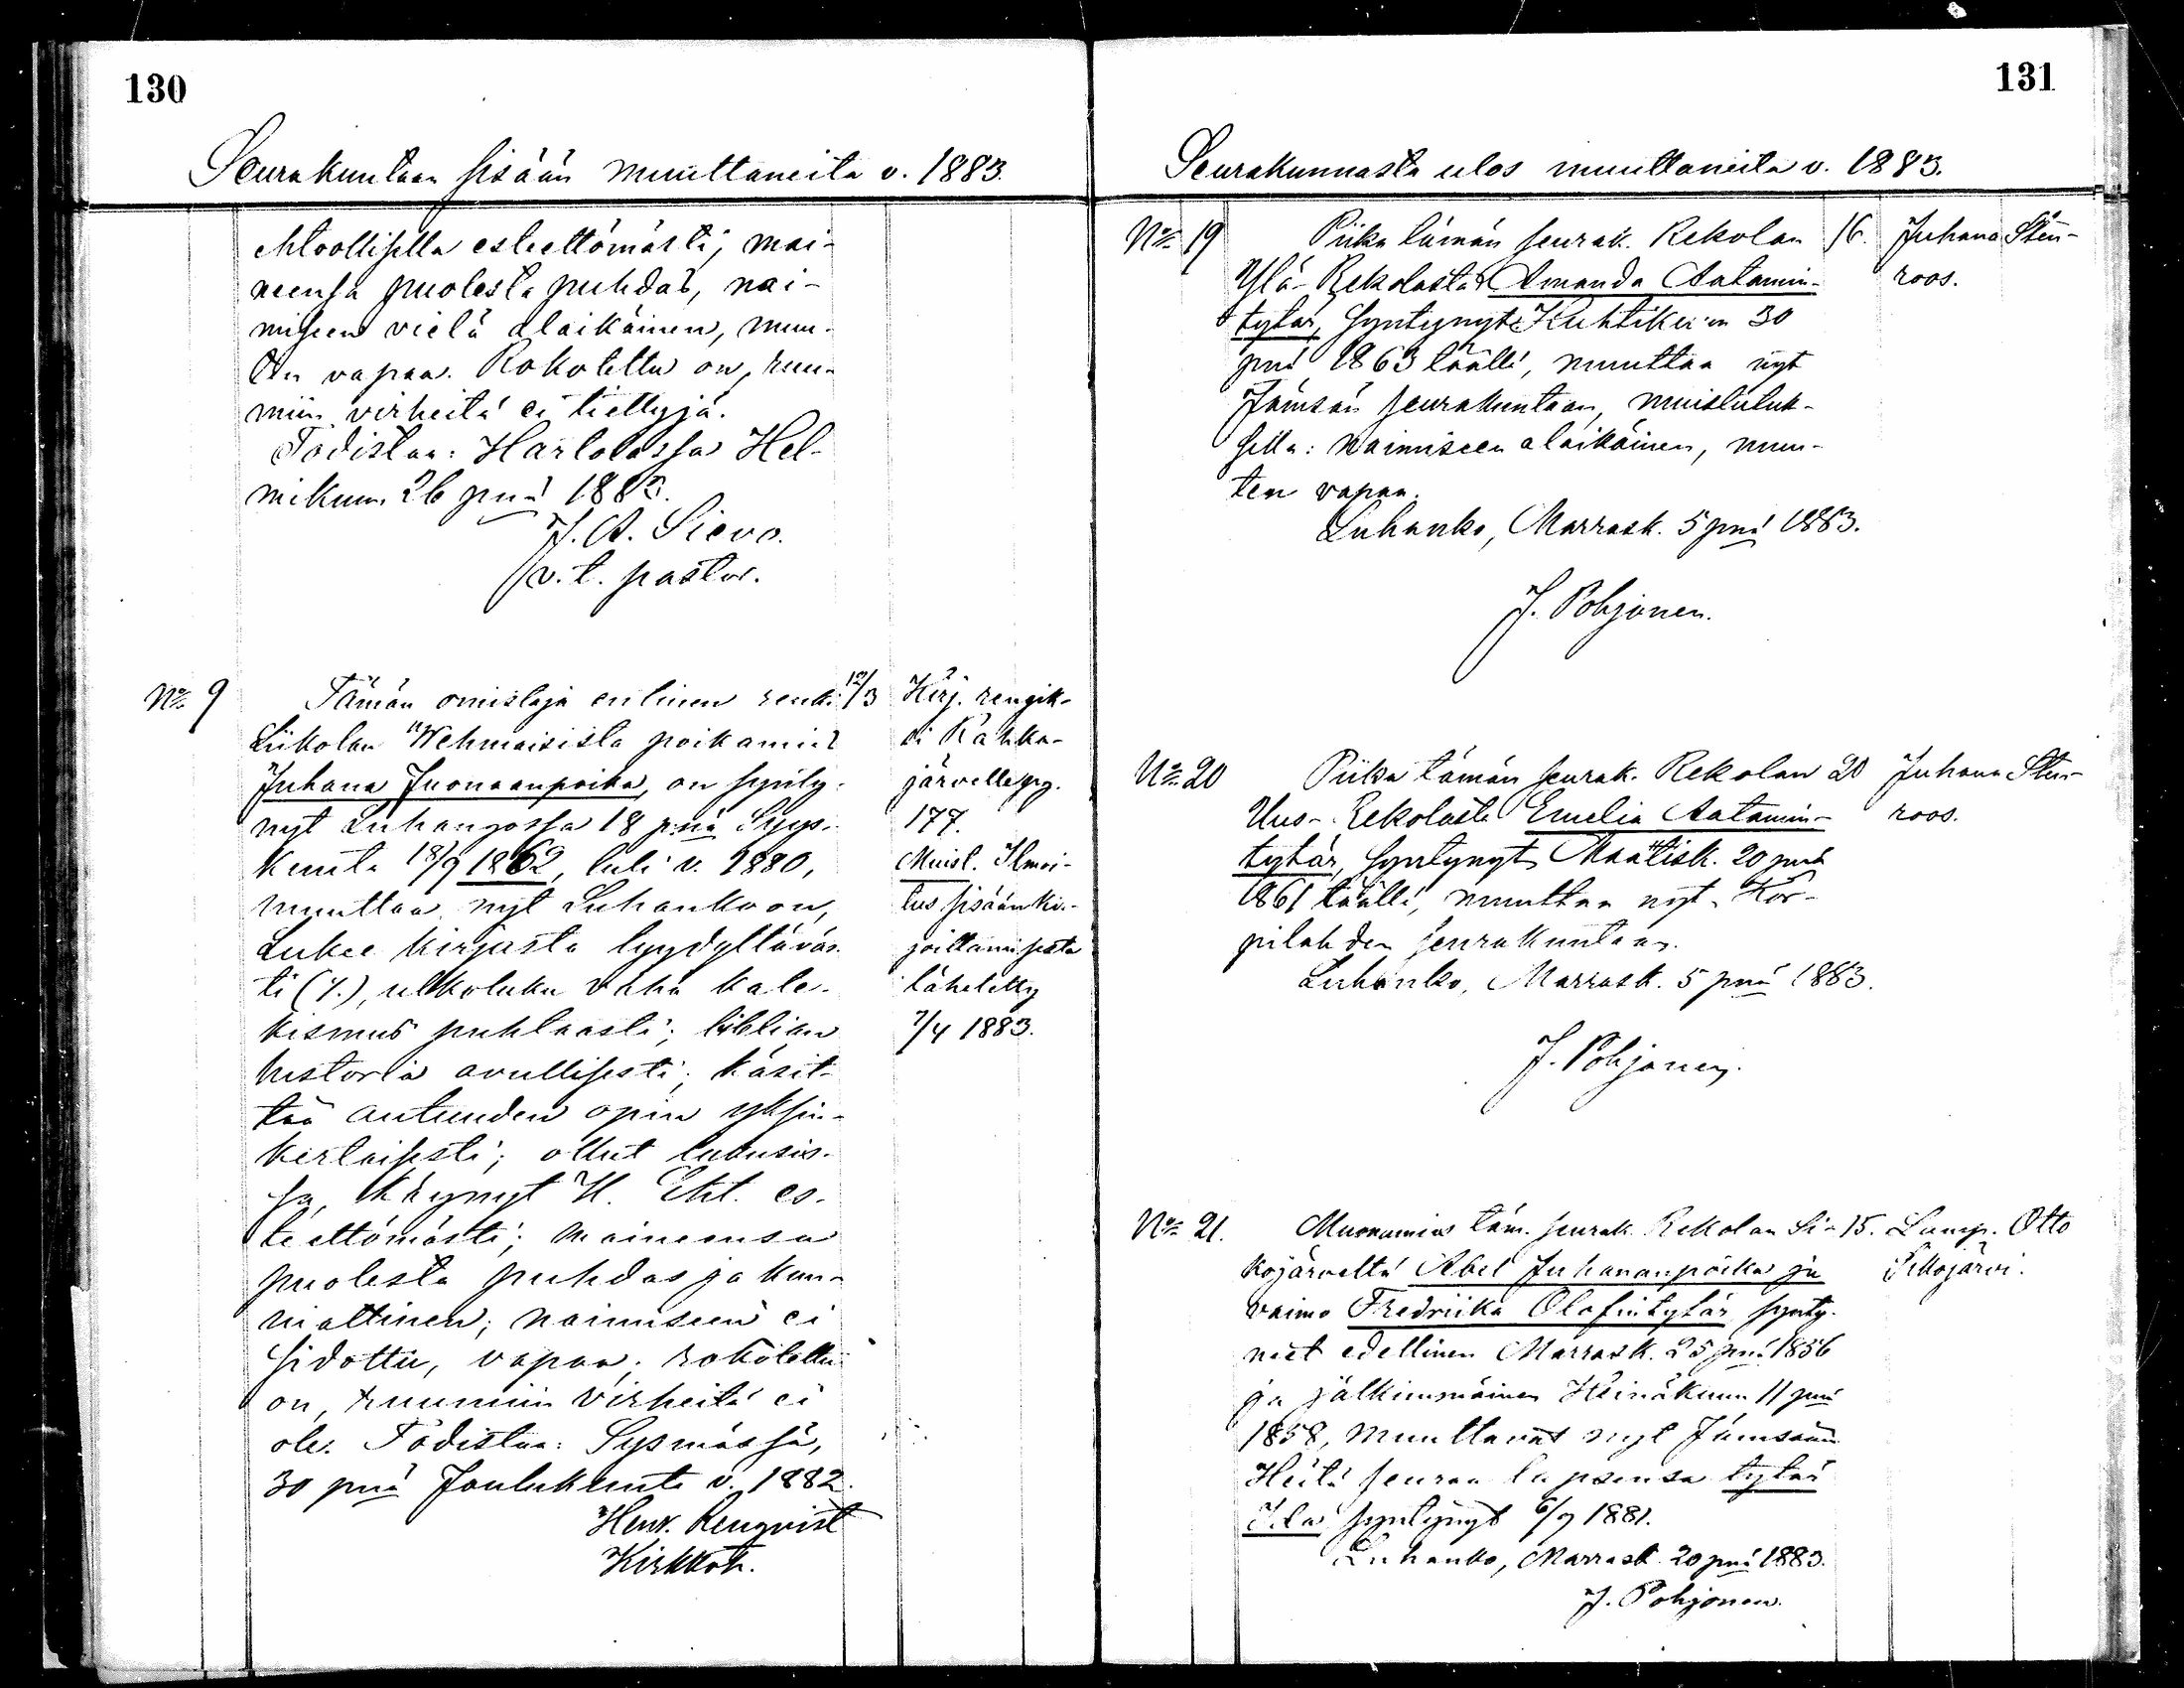 130
Seurakuntaan sisään muuttaneita v. 1883.
ehtoollisella esteettömästi; mai-
neensa puolesta puhdas, nai-
miseen vielä alaikäinen, muu-
ten vapaa. Rokotettu on, ruu-
miin virheitä ei tiettyjä.
Todistaa: Hartolassa Hel-
mikuun 26 pnä 1883.
J. A. Sievo.
v. t. pastor.
No 9
Tämän omistaja entinen renki
Liikolan Wehmaisista poikamies
Juhana Juonaanpoika, on synty-
nyt Luhangossa 18 pnä Syys-
kuuta 18/9 1862, tuli v. 1880,
muuttaa nyt Luhankoon,
Lukee kirjasta tyydyttäväs-
ti (y.), ulkoluku vähä kate-
kismus puhtaasti; biblian
historia avullisesti; käsit-
tää autuuden opin yksin-
kertaisesti; ollut lukusis-
sa, käynyt H. Eht. es-
teettömästi; maineensa
puolesta puhdas ja kun-
niallinen; naimiseen ei
sidottu, vapaa; rokotettu
on, ruumiin virheitä ei
ole. Todistaa: Sysmässä,
30 pnä Joulukuuta v. 1882.
Henr. Renqvist
Kirkkoh.
12/3
Kirj. rengik-
si Kahka-
järvelle pg.
177.
Muist. Ilmoi-
tus sisäänkir-
joittamisesta
lähetetty
7/4 1883.
131
Seurakunnasta ulos muuttaneita v. 1883.
No 19
Piika tämän seurak. Rekolan
Ylä-Rekolasta Amanda Aatamin-
tytär, syntynyt Huhtikuun 30
pnä 1863 täällä, muuttaa nyt
Jämsän seurakuntaan, muistutuk-
sella: naimiseen alaikäinen, muu-
ten vapaa.
Luhanko, Marrask. 5 pnä 1883.
J. Pohjonen.
16.
Juhana Sten-
roos.
No 20
Piika tämän seurak. Rekolan
Uus-Rekolasta Emelia Aatamin-
tytär, syntynyt Maalisk. 20 pnä
1861 täällä, muuttaa nyt Kor-
pilahden seurakuntaan.
Luhanko, Marrask. 5 pnä 1883.
J. Pohjonen.
20
Juhana Sten-
roos.
No 21.
Muonamies täm. seurak. Rekolan Si-
kojärveltä Abel Juhananpoika ja
vaimo Fredriika Olofintytär synty-
neet edellinen Marrask. 25 pnä 1856
ja jälkimmäinen Heinäkuun 11 pnä
1858, muuttavat nyt Jämsään
Heitä seuraa lapsensa tytär
Ida syntynyt 6/9 1881.
Luhanko, Marrask. 20 pnä 1883.
J. Pohjonen.
15.
Lamp. Otto
Sikojärvi.